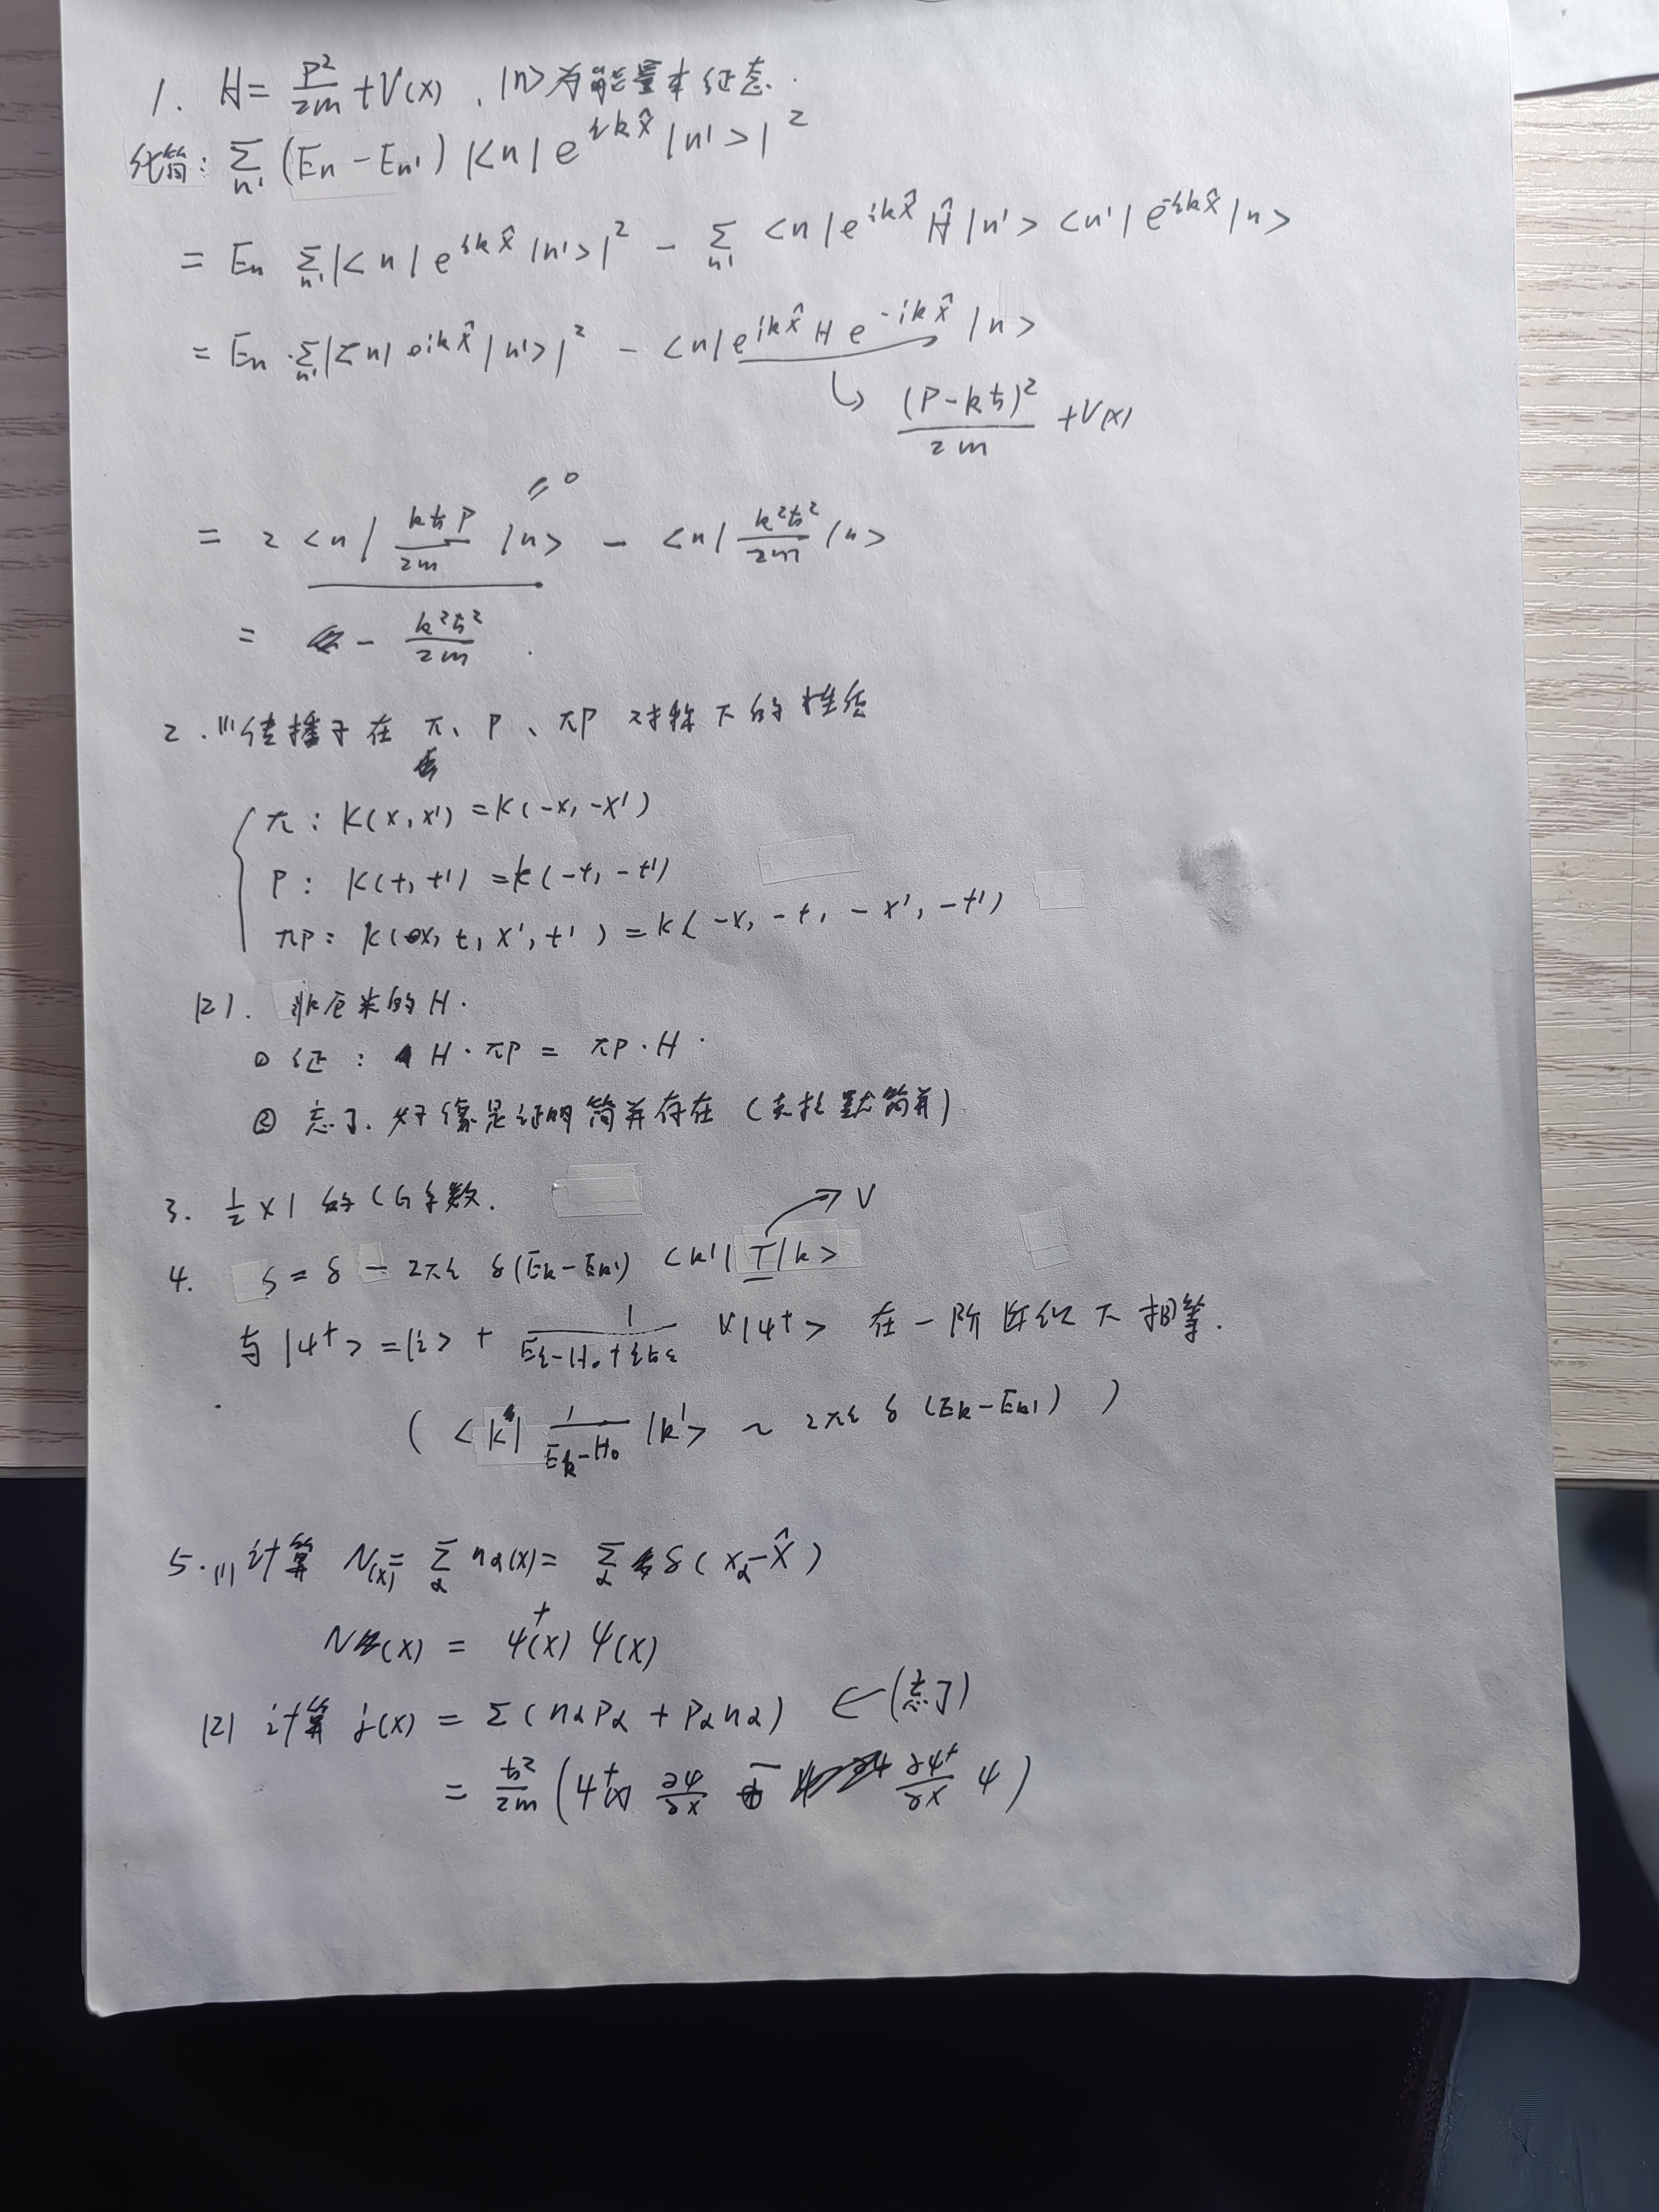 1. H = P²/2m + V(x) , |n>为能量本征态.
化简: Σ_n' (En - En') |<n| e^{ikx̂} |n'>|²
= En Σ_n' |<n| e^{ikx̂} |n'>|² - Σ_n' <n| e^{ikx̂} Ĥ |n'> <n'| e^{-ikx̂} |n>
= En · Σ_n' |<n| e^{ikx̂} |n'>|² - <n| e^{ikx̂} H e^{-ikx̂} |n>
↳ (P-kħ)²/2m + V(x)
= 2 <n| kħP/2m |n> - <n| k²ħ²/2m |n>
= 0
= - k²ħ²/2m .
2. (1) 传播子在 π、P、πP 对称下的性质
π: K(x, x') = K(-x, -x')
P: K(t, t') = K(-t, -t')
πP: K(x, t, x', t') = K(-x, -t, -x', -t')
(2). 非厄米的 H.
① 证: H·πP = πP·H .
② 忘了. 好像是证明简并存在 (克拉默简并)
3. 1/2 × 1 的 CG 系数.
4. S = δ - 2πi δ(Ek - Ek') <k'| T |k> → V
与 |ψ⁺> = |i> + 1/(Ei - H₀ + iħε) V|ψ⁺> 在一阶近似下相等.
( <k| 1/(Ek - H₀) |k'> ~ 2πi δ(Ek - Ek') )
5. (1) 计算 N(x) = Σ_α nα(x) = Σ_α δ(xα - X̂)
N(x) = ψ⁺(x) ψ(x)
(2) 计算 j(x) = Σ(nαPα + Pαnα) ← (忘了)
= ħ²/2m (ψ⁺(x) ∂ψ/∂x - ∂ψ⁺/∂x ψ)